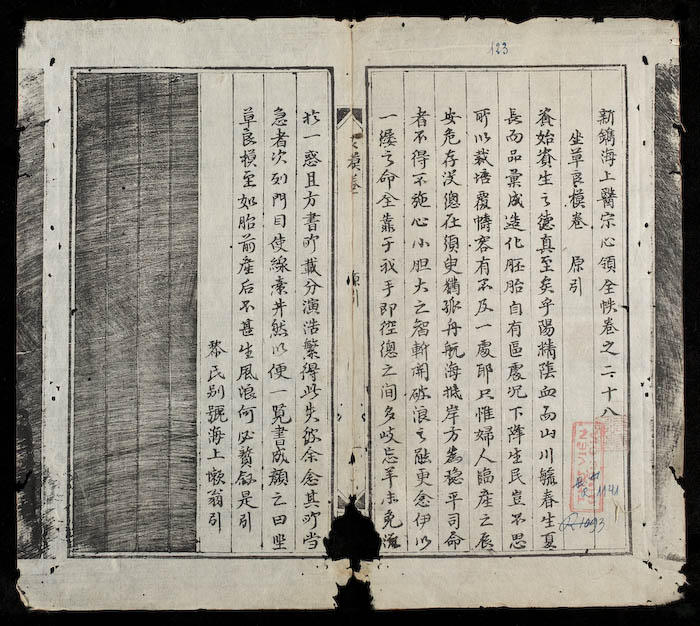 123
新鐫海上醫宗心領全帙卷之二十八
坐草良模卷 原引
資始資生之德真至矣乎陽精陰血而山川毓春生夏
長而品彙成造化胚胎自有區處况下降生民豈不思
所以栽培覆幬容有不及一處耶只惟婦人臨產之辰
安危存没總在須臾猶孤舟航海拢岸方為穩平司命
者不得不施心小胆大之智斬開破浪之融更愈伊以
一縷之命全靠于我手即從總之間多歧忘羊未免流
於一惑且方書所載分演浩繁得此失彼余愈其所当
急者次列門目使線索井然以便一覽書成顏之曰坐
草良模至如胎前產后不甚生風浪何必贅叙是引
黎民别號海上懶翁引
模卷
原引
1141
1093